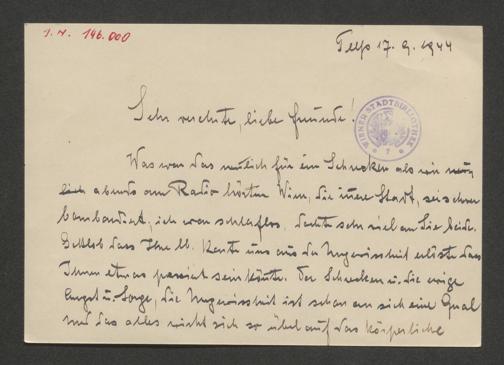 I. N. 146.000
Telfs 17. 9. 1944
Sehr verehrte, liebe Freunde!
WIENER STADTBIBLIOTHEK
Was war das neulich für ein Schrecken als wir neu
lich abends am Radio hörten Wien, die innere Stadt, sei schwer
bombardiert, ich war schlaflos, dachte sehr viel an Sie beide.
Gottlob dass Ihre lb. Karte uns aus der Ungewissheit erlöste dass
Ihnen etwas passiert sein könnte. Der Schrecken u. die ewige
Angst u. Sorge, die Ungewissheit ist schon an sich eine Qual
und das alles wirkt sich so übel auf das körperliche